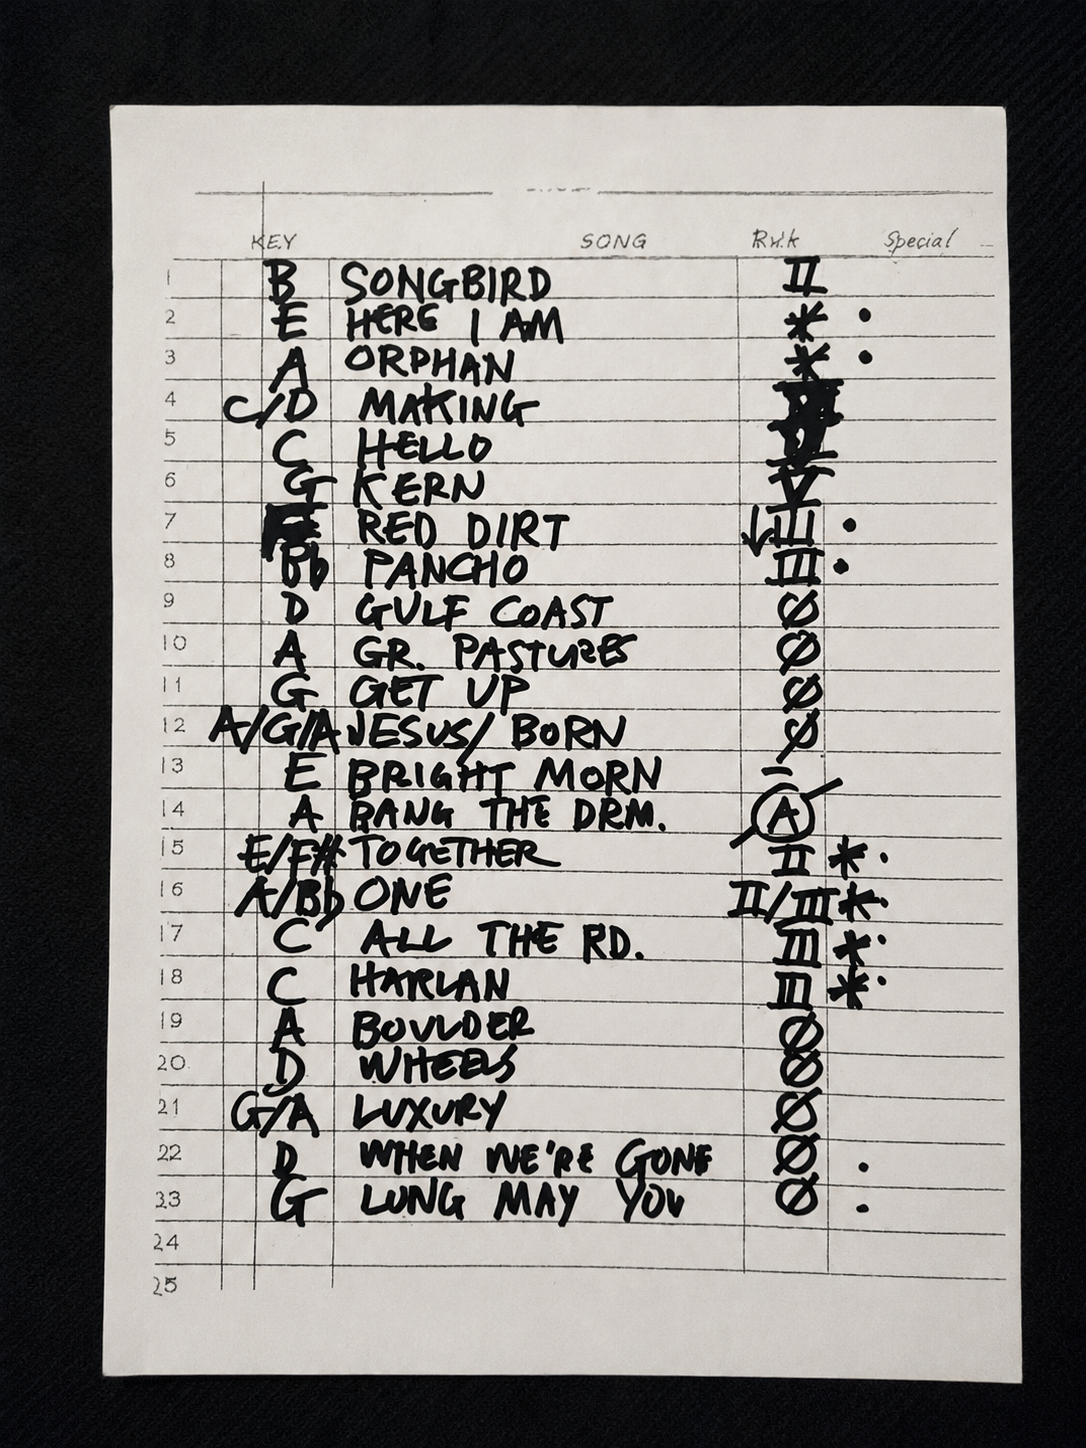 KEY SONG Rvik Special
1 B SONGBIRD II
2 E HERE I AM * •
3 A ORPHAN * •
4 C/D MAKING
5 C HELLO
6 G KERN V
7 RED DIRT ↓ III •
8 Bb PANCHO III •
9 D GULF COAST Ø
10 A GR. PASTURES Ø
11 G GET UP Ø
12 A/G/A JESUS/ BORN Ø
13 E BRIGHT MORN –
14 A BANG THE DRM. A
15 E/F# TOGETHER II * •
16 A/Bb ONE II/III * •
17 C ALL THE RD. III * •
18 C HARLAN III * •
19 A BOULDER Ø
20 D WHEELS Ø
21 G/A LUXURY Ø
22 D WHEN WE'RE GONE Ø •
23 G LONG MAY YOU Ø •
24
25